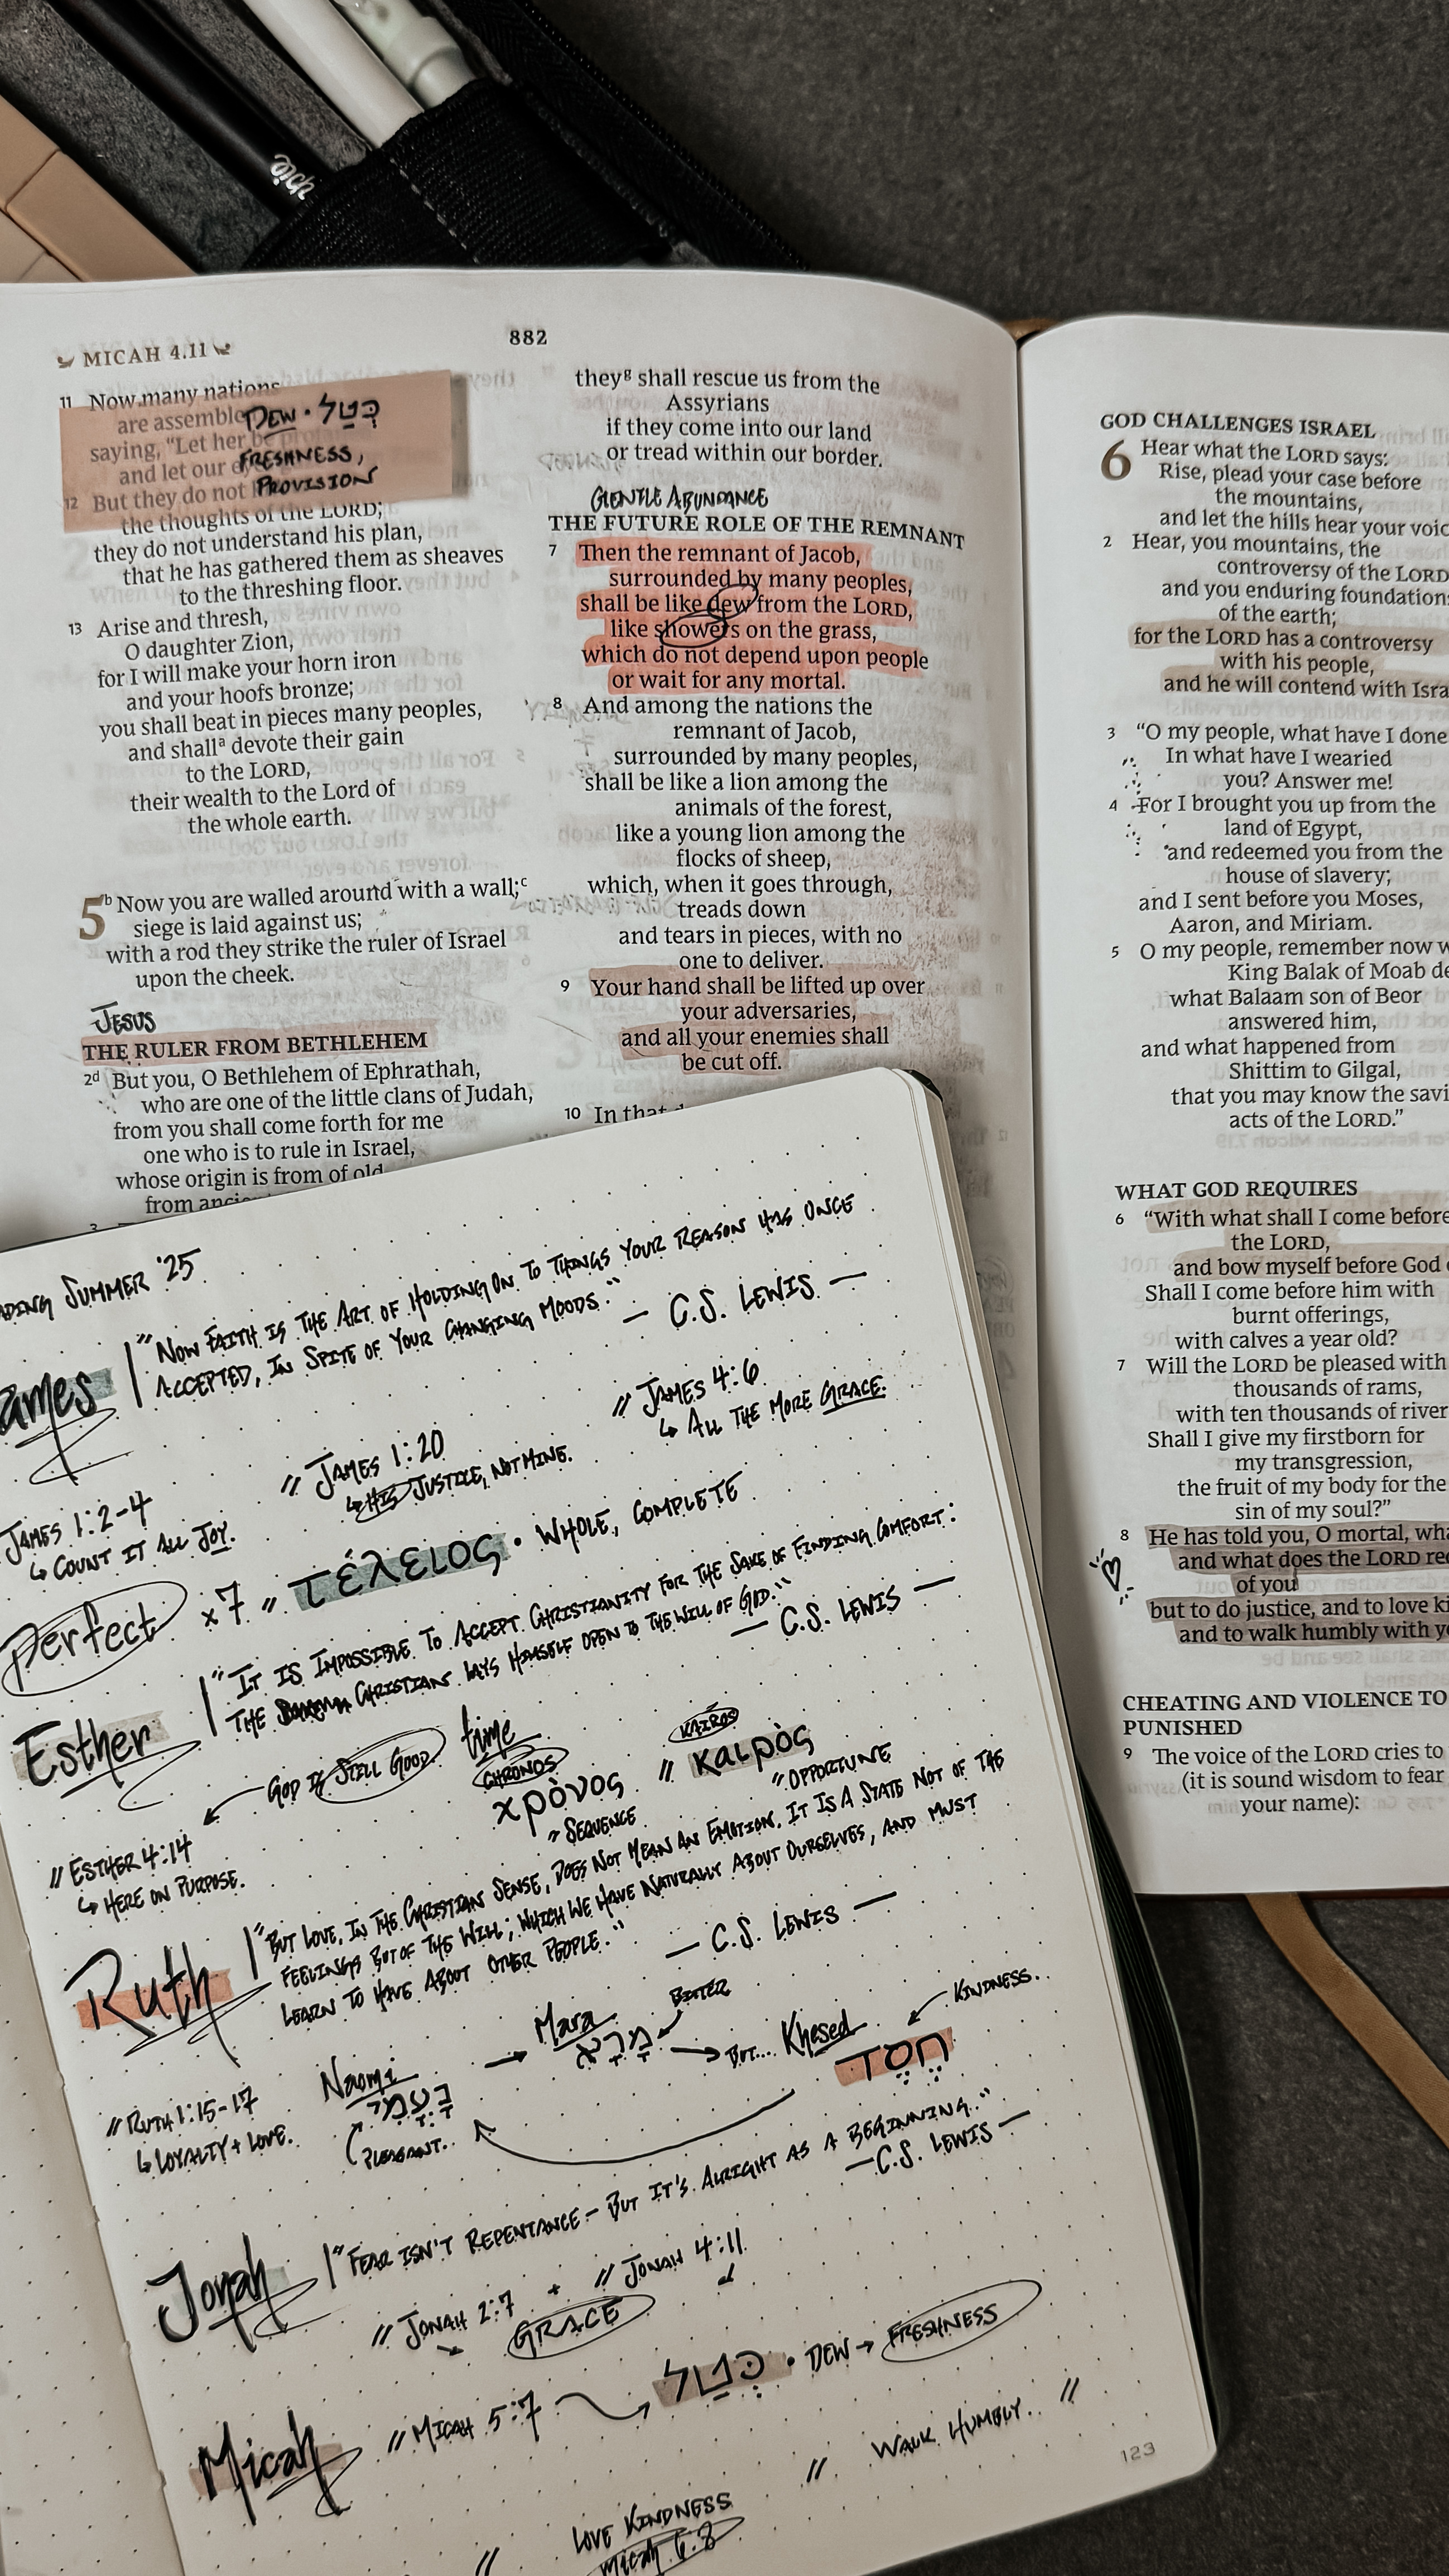 882
MICAH 4.11
11 Now many nations
are assemble
saying, "Let her be
and let our e
12 But they do not
the thoughts of the LORD;
they do not understand his plan,
that he has gathered them as sheaves
to the threshing floor.
13 Arise and thresh,
O daughter Zion,
for I will make your horn iron
and your hoofs bronze;
you shall beat in pieces many peoples,
and shallᵃ devote their gain
to the LORD,
their wealth to the Lord of
the whole earth.
DEW · כְּטַל
FRESHNESS,
PROVISION
5 ᵇ Now you are walled around with a wall;ᶜ
siege is laid against us;
with a rod they strike the ruler of Israel
upon the cheek.
JESUS
THE RULER FROM BETHLEHEM
2ᵈ But you, O Bethlehem of Ephrathah,
who are one of the little clans of Judah,
from you shall come forth for me
one who is to rule in Israel,
whose origin is from of old,
from anci
3
theyᵍ shall rescue us from the
Assyrians
if they come into our land
or tread within our border.
GENTLE ABUNDANCE
THE FUTURE ROLE OF THE REMNANT
7 Then the remnant of Jacob,
surrounded by many peoples,
shall be like dew from the LORD,
like showers on the grass,
which do not depend upon people
or wait for any mortal.
8 And among the nations the
remnant of Jacob,
surrounded by many peoples,
shall be like a lion among the
animals of the forest,
like a young lion among the
flocks of sheep,
which, when it goes through,
treads down
and tears in pieces, with no
one to deliver.
9 Your hand shall be lifted up over
your adversaries,
and all your enemies shall
be cut off.
10 In that
GOD CHALLENGES ISRAEL
6 Hear what the LORD says:
Rise, plead your case before
the mountains,
and let the hills hear your voic
2 Hear, you mountains, the
controversy of the LORD
and you enduring foundation
of the earth;
for the LORD has a controversy
with his people,
and he will contend with Isra
3 "O my people, what have I done
In what have I wearied
you? Answer me!
4 For I brought you up from the
land of Egypt,
and redeemed you from the
house of slavery;
and I sent before you Moses,
Aaron, and Miriam.
5 O my people, remember now w
King Balak of Moab de
what Balaam son of Beor
answered him,
and what happened from
Shittim to Gilgal,
that you may know the savi
acts of the LORD."
WHAT GOD REQUIRES
6 "With what shall I come before
the LORD,
and bow myself before God
Shall I come before him with
burnt offerings,
with calves a year old?
7 Will the LORD be pleased with
thousands of rams,
with ten thousands of river
Shall I give my firstborn for
my transgression,
the fruit of my body for the
sin of my soul?"
8 He has told you, O mortal, wha
and what does the LORD req
of you
but to do justice, and to love ki
and to walk humbly with yo
CHEATING AND VIOLENCE TO
PUNISHED
9 The voice of the LORD cries to
(it is sound wisdom to fear
your name):
ADING SUMMER '25
James
"NOW FAITH IS THE ART OF HOLDING ON TO THINGS YOUR REASON HAS ONCE
ACCEPTED, IN SPITE OF YOUR CHANGING MOODS."
— C.S. LEWIS —
// JAMES 4:6
↳ ALL THE MORE GRACE.
// JAMES 1:20
↳ HIS JUSTICE, NOT MINE.
JAMES 1:2-4
↳ COUNT IT ALL JOY.
Perfect x7 " τέλειος · WHOLE, COMPLETE
Esther
"IT IS IMPOSSIBLE TO ACCEPT CHRISTIANITY FOR THE SAKE OF FINDING COMFORT:
THE CHRISTIAN LAYS HIMSELF OPEN TO THE WILL OF GOD."
— C.S. LEWIS —
GOD IS STILL GOOD.
time
CHRONOS
χρὸνος
" SEQUENCE
//
KAIROS
καιρὸς
" OPPORTUNE
// ESTHER 4:14
↳ HERE ON PURPOSE.
Ruth
"BUT LOVE, IN THE CHRISTIAN SENSE, DOES NOT MEAN AN EMOTION. IT IS A STATE NOT OF THE
FEELINGS BUT OF THE WILL; WHICH WE HAVE NATURALLY ABOUT OURSELVES, AND MUST
LEARN TO HAVE ABOUT OTHER PEOPLE."
— C.S. LEWIS —
// RUTH 1:15-17
↳ LOYALTY + LOVE.
Naomi
נָעֳמִי
PLEASANT..
→ Mara
מָרָא
BITTER
→ BUT... Khesed
חֶסֶד
KINDNESS..
Jonah
"FEAR ISN'T REPENTANCE – BUT IT'S ALRIGHT AS A BEGINNING.."
— C.S. LEWIS —
// JONAH 2:7 + // JONAH 4:11
GRACE
Micah
// MICAH 5:7
כְּטַל · DEW → FRESHNESS
// WALK HUMBLY. //
// LOVE KINDNESS
Micah 6:8
123